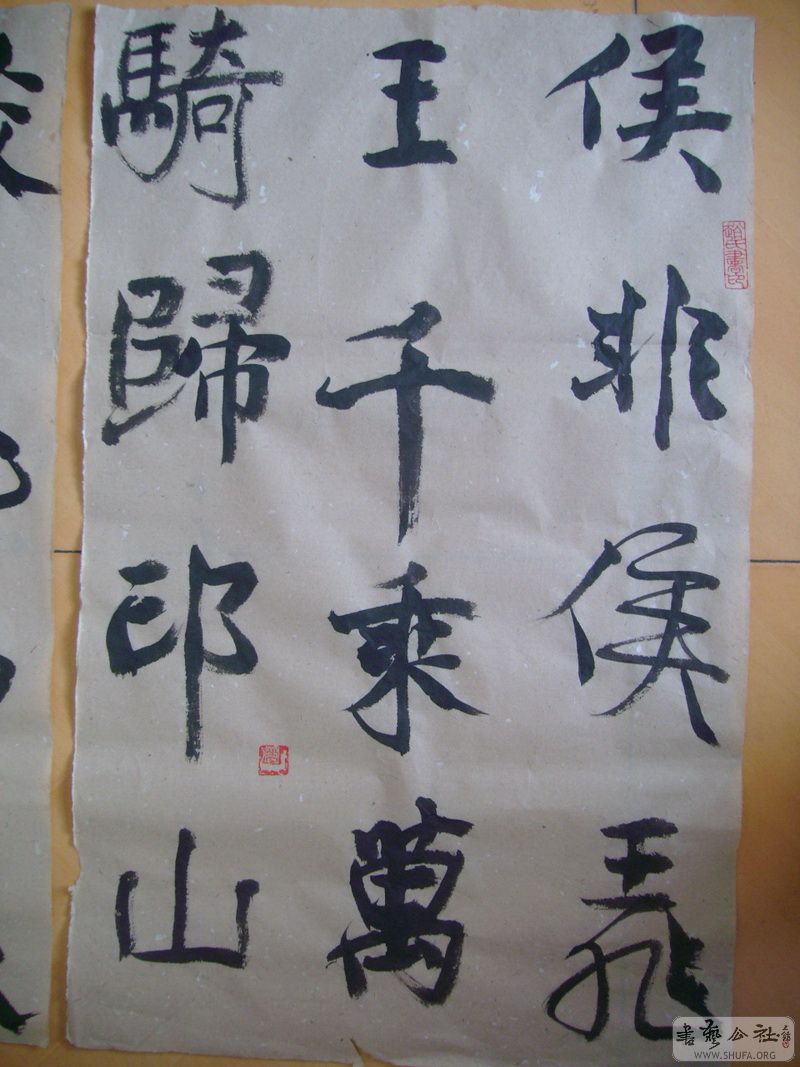 侯非侯王非
王千乘萬
騎歸邙山
書藝公社
WWW.SHUFA.ORG